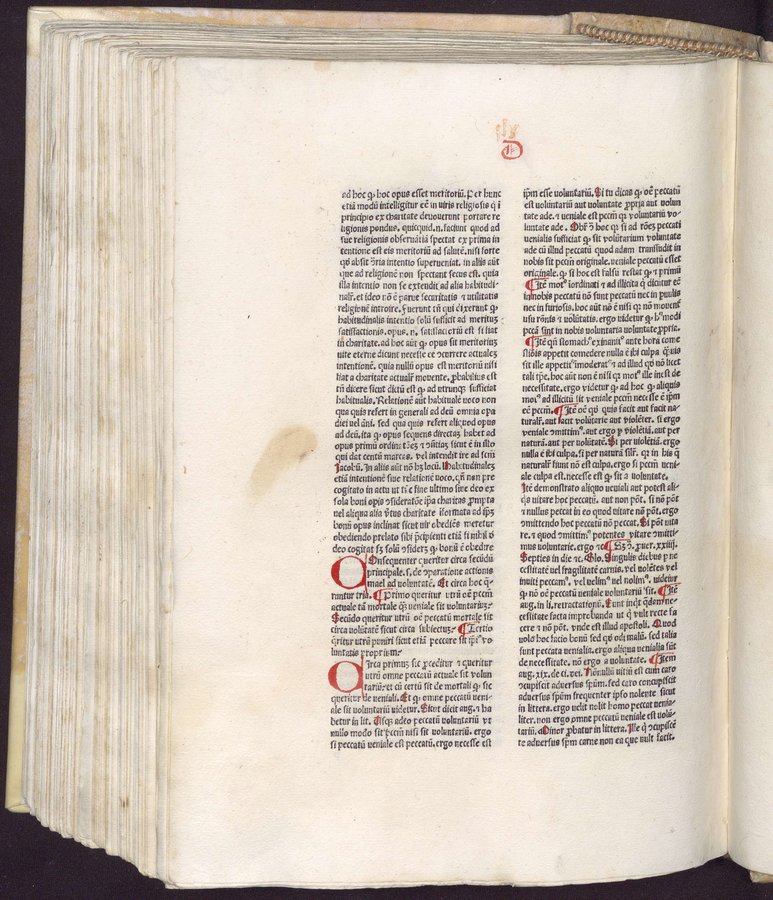 ad hoc ꝙ hoc opus esset meritoriũ. Per hunc
etiã modũ intelligitur cẽ in viris religiosis q̃ i
principio ex charitate deuouerunt portare re
ligionis pondus. quicquid .n. faciunt quod ad
sue religionis obseruãtiã spectat ex prima in
tentione est eis meritoriũ ad salutẽ. nisi forte
qd̃ absit ↄ̃ria intentio superueniat. in aliis aũt
que ad religionẽ non spectant secus est. quia
illa intentio non se extendit ad alia habitudi-
nalr̃. et ideo nõ ẽ parue securitatis ⁊ vtilitatis
religionẽ introire. Fuerunt tñ qui dixerunt ꝙ
habitudinalis intentio solũ sufficit ad meritũ
satisfactionis. opus .n. satisfactoriũ est si fiat
in charitate. ad hoc aũt ꝙ opus sit meritoriũ
vite eterne dicunt necesse eẽ ↄcurrere actualẽ
intentionẽ. quia nullũ opus est meritoriũ nisi
fiat a charitate actualr̃ mouente. ꝓbabilius est
tñ dicere sicut dictũ est ꝙ ad vtrunqꝫ sufficiat
habitualis. Relationẽ aũt habitualẽ voco non
qua quis refert in generali ad deũ omnia opa
diei vel ãni. sed qua quis refert aliquod opus
ad deũ. ita ꝙ opus sequens directaꝫ habet ad
opus primũ ordinatõeꝫ sicut ẽ in illo
qui dat centũ marcas. vel intendit ire ad scm̃
Jacobũ. In aliis aũt nõ hꝫ locũ. Habitudinaleꝫ
etiã intentionẽ siue relationẽ voco. qñ non pre
cogitato in actu vt tñ fine vltimo siue deo ex
sola boni opis ↄsideratõe ipa charitas ꝓmpta
vel aliqua alia ṽtus charitate iformata ad ipꝫ
bonũ opus inclinat sicut vir obediẽs meretur
obediendo prelato sibi p̃cipienti etiã si nihil õ
deo cogitat sꝫ solũ ↄsiderꝫ ꝙ bonũ ẽ obedire
QOnsequenter queritur circa secũdũ
principale. s. de ↄparatione actionis
male ad voluntatẽ. Et circa hoc q̃-
runtur tria. ¶ Primo queritur vtrũ oẽ pctm̃
actuale tã mortale qꝫ veniale sit voluntariuꝫ.
Secũdo queritur vtrũ oẽ peccatũ mortale sit
circa volũtatẽ sicut circa subiectuꝫ. ¶ Tertio
q̃ritur vtrũ puniri sicut etiã peccare sit ipi9 vo-
luntatis propriumꝫ
QIrca primuꝫ sic ꝓceditur ⁊ queritur
vtrũ omne peccatũ actuale sit volun
tariũꝫ et cũ certũ sit de mortali ꝙ sic
queritur de veniali. Et ꝙ omne peccatũ veni-
ale sit voluntariũ videtur. Sicut dicit aug. ⁊ ha
betur in lit. Usqꝫ adeo peccatũ voluntariũ vt
nullo modo sit pctm̃ nisi sit voluntariũ. ergo
si peccatũ veniale est peccatũ. ergo necesse est
ipm̃ esse voluntariũ. Si tu dicas ꝙ oẽ peccatũ
est voluntariũ aut voluntate ꝓpria aut volun
tate ade. ⁊ veniale est pctm̃ qꝛ voluntariũ vo-
luntate ade. Obr̃ ↄ̃ hoc qꝛ si ad rõeꝫ peccati
venialis sufficiat ꝙ sit volũtarium voluntate
ade cũ illud peccatũ quod adam transfudit in
nobis sit pctm̃ originale. veniale peccatũ esset
originale. ꝙ si hoc est falsũ restat ꝙ ⁊ primũ
¶ Itẽ mot9 iordinati ⁊ ad illicita q̃ dicutur eẽ
in nobis peccatũ nõ sunt peccatũ nec in puulis
nec in furiosis. hoc aũt nõ ẽ nisi qꝛ nõ mouent
usu rõnis ⁊ volũtatis. ergo videtur ꝙ h9modi
pctã sint in nobis voluntaria voluntate ꝓpria.
¶ Itẽ qñ stomach9 exinanit9 ante horã come
stiõis appetit comedere nulla ẽ ibi culpa q̃uis
sit ille appetit9 imoderat9 ⁊ ad illud qd̃ nõ licet
tali tp̃e. hoc aũt non ẽ nisi qꝛ mot9 ille inest de
necessitate. ergo videtur ꝙ ad hoc ꝙ aliquis
mot9 ad illicitũ sit veniale pctm̃ necesse ẽ ipm̃
eẽ pctm̃. ¶ Itẽ oẽ qd̃ quis facit aut facit na-
turalr̃. aut facit volũtarie aut violẽter. si ergo
veniale ↄmittim9. aut ergo p violẽtiã. aut per
naturã. aut per volũtatẽ. Si per violẽtiã. ergo
nulla ẽ ibi culpa. si per naturã silr̃. qꝛ in his q̃
naturalr̃ sunt nõ est culpa. ergo si pctm̃ veni-
ale culpa est. necesse est ꝙ sit a voluntate.
Itẽ demonstrato aliquo veniali aut potest ali-
qs vitare hoc peccatũ. aut non põt. si nõ põt
⁊ nullus peccat in eo quod vitare nõ põt. ergo
ↄmittendo hoc peccatũ nõ peccat. Si põt vita
re. ⁊ quod ↄmittim9 potentes vitare ↄmitti-
mus voluntarie. ergo ⁊c̃ ¶ Sꝫ ↄ̃. ꝓuer. xxiiij.
Septies in die ⁊c̃. Glo. Singulis diebus p ne
cessitatẽ vel fragilitatẽ carnis. vel nolẽtes vel
inuiti peccam9. vel velim9 vel nolim9. videtur
ꝙ nõ oẽ peccatũ veniale voluntariũ sit. ¶ Itẽ
aug. in li. retractationũ. Sunt inqt qdam ne-
cessitate facta improbanda vt ꝙ vult recte fa
cere ⁊ nõ põt. vnde est illud apostoli. Quod
volo hoc facio bonũ sed qd̃ odi malũ. sed talia
sunt peccata venialia. ergo aliqua venialia sũt
de necessitate. nõ ergo a voluntate. ¶ Item
aug. xix. de ci. dei. Nõnullũ vitiũ est cum caro
ↄcupiscit aduersus spũm. sed caro concupiscit
aduersus spũm frequenter ipso nolente sicut
in littera. ergo velit nolit homo peccat venia-
liter. non ergo omne peccatũ veniale est volũ-
tariũ. Minor ꝓbatur in littera. Ille ꝙ ↄcupiscẽ
te aduersus spm̃ carne non ea que vult facit.